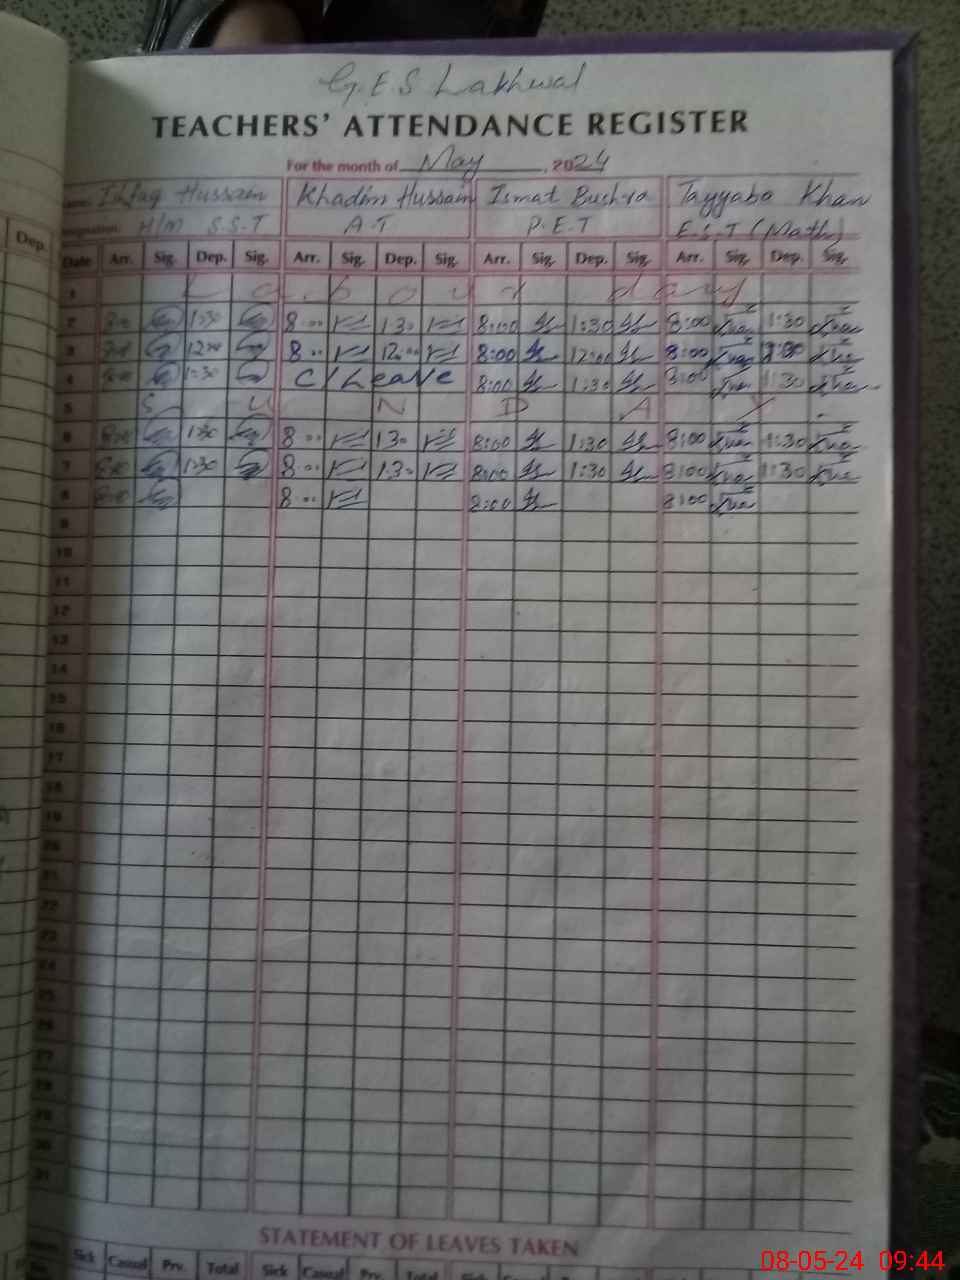 G.E.S Lakhwal
TEACHERS' ATTENDANCE REGISTER
For the month of May, 2024
Ishfaq Hussain Khadim Hussain Ismat Bushra Tayyaba Khan
Designation: H/M S.S.T A.T P.E.T E.S.T (Math)
Dep.
Date Arr. Sig. Dep. Sig. Arr. Sig. Dep. Sig. Arr. Sig. Dep. Sig. Arr. Sig. Dep. Sig.
1 Labour day
2 8:00 1:30 8:00 1:30 8:00 1:30 8:00 1:30
3 8:00 12:00 8:00 12:00 8:00 12:00 8:00
4 8:00 1:30 C/Leave 8:00 1:30 8:00 1:30
5 SUNDAY
6 8:00 1:30 8:00 1:30 8:00 1:30 8:00 1:30
7 8:00 1:30 8:00 1:30 8:00 1:30 8:00 1:30
8 8:00 8:00 8:00 8:00
9
10
11
12
13
14
15
16
17
18
19
20
21
22
23
24
25
26
27
28
29
30
31
STATEMENT OF LEAVES TAKEN
Sick Casual Prv. Total Sick Casual Prv. Total Sick Casual Prv. Total Sick Casual Prv.
08-05-24 09:44